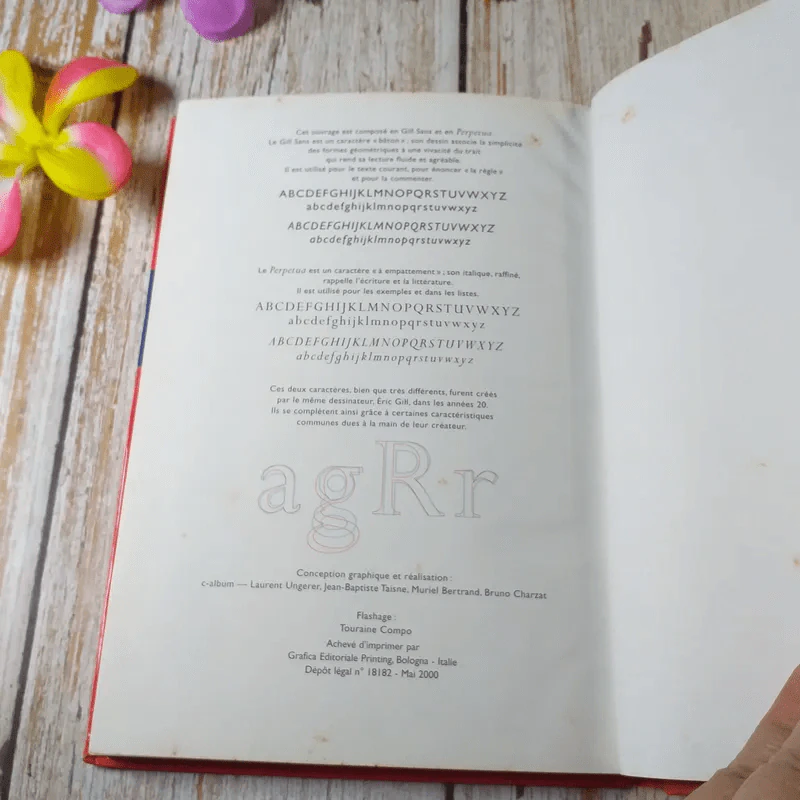 Cet ouvrage est composé en Gill Sans et en Perpetua
Le Gill Sans est un caractère « bâton » ; son dessin associe la simplicité
des formes géométriques à une vivacité du trait
qui rend sa lecture fluide et agréable.
Il est utilisé pour le texte courant, pour énoncer « la règle »
et pour la commenter.
ABCDEFGHIJKLMNOPQRSTUVWXYZ
abcdefghijklmnopqrstuvwxyz
ABCDEFGHIJKLMNOPQRSTUVWXYZ
abcdefghijklmnopqrstuvwxyz
Le Perpetua est un caractère « à empattement » ; son italique, raffiné,
rappelle l'écriture et la littérature.
Il est utilisé pour les exemples et dans les listes.
ABCDEFGHIJKLMNOPQRSTUVWXYZ
abcdefghijklmnopqrstuvwxyz
ABCDEFGHIJKLMNOPQRSTUVWXYZ
abcdefghijklmnopqrstuvwxyz
Ces deux caractères, bien que très différents, furent créés
par le même dessinateur, Éric Gill, dans les années 20.
Ils se complètent ainsi grâce à certaines caractéristiques
communes dues à la main de leur créateur.
agRr
Conception graphique et réalisation :
c-album — Laurent Ungerer, Jean-Baptiste Taisne, Muriel Bertrand, Bruno Charzat
Flashage :
Touraine Compo
Achevé d'imprimer par
Grafica Editoriale Printing, Bologna - Italie
Dépôt légal n° 18182 - Mai 2000